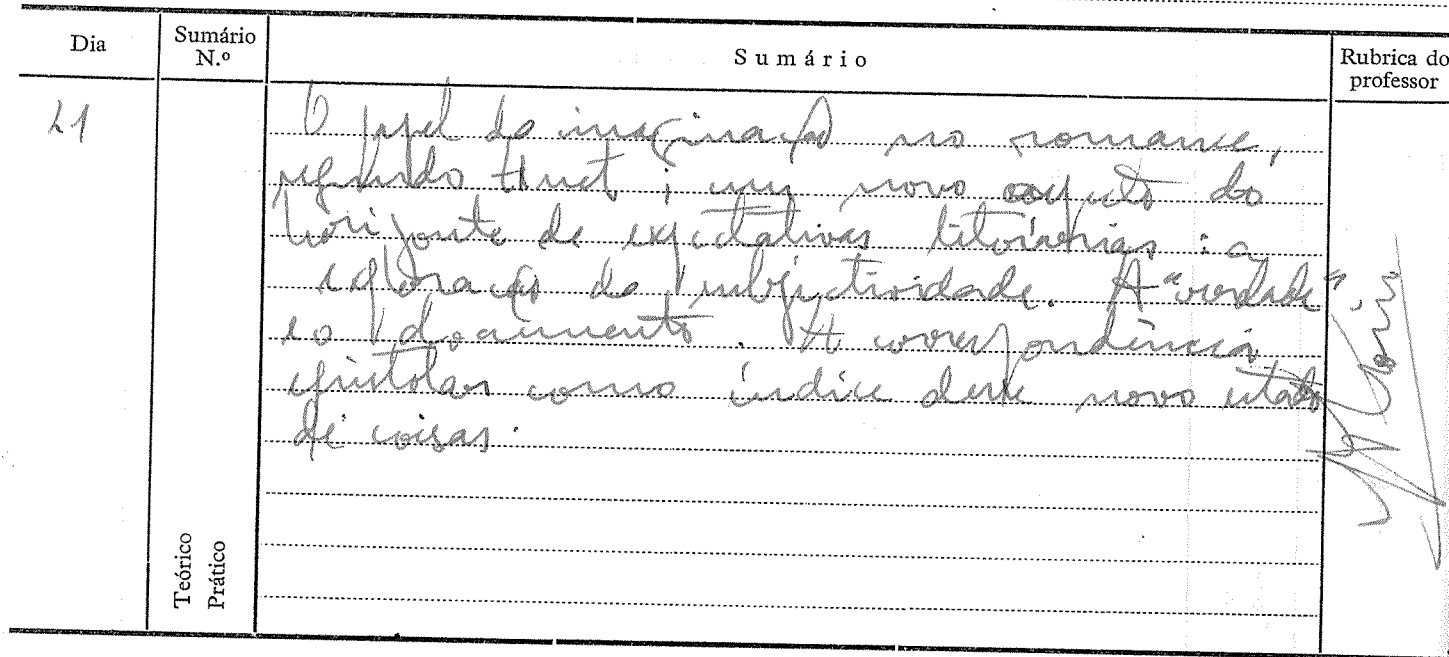 Dia
Sumário
N.º
Sumário
Rubrica do
professor
21
O papel da imaginação no romance,
segundo Huet; um novo aspecto do
horizonte de expectativas literárias: a
exploração da subjectividade. A "verdade"
e o documento. A correspondência
epistolar como índice deste novo estado
de coisas.
Teórico
Prático